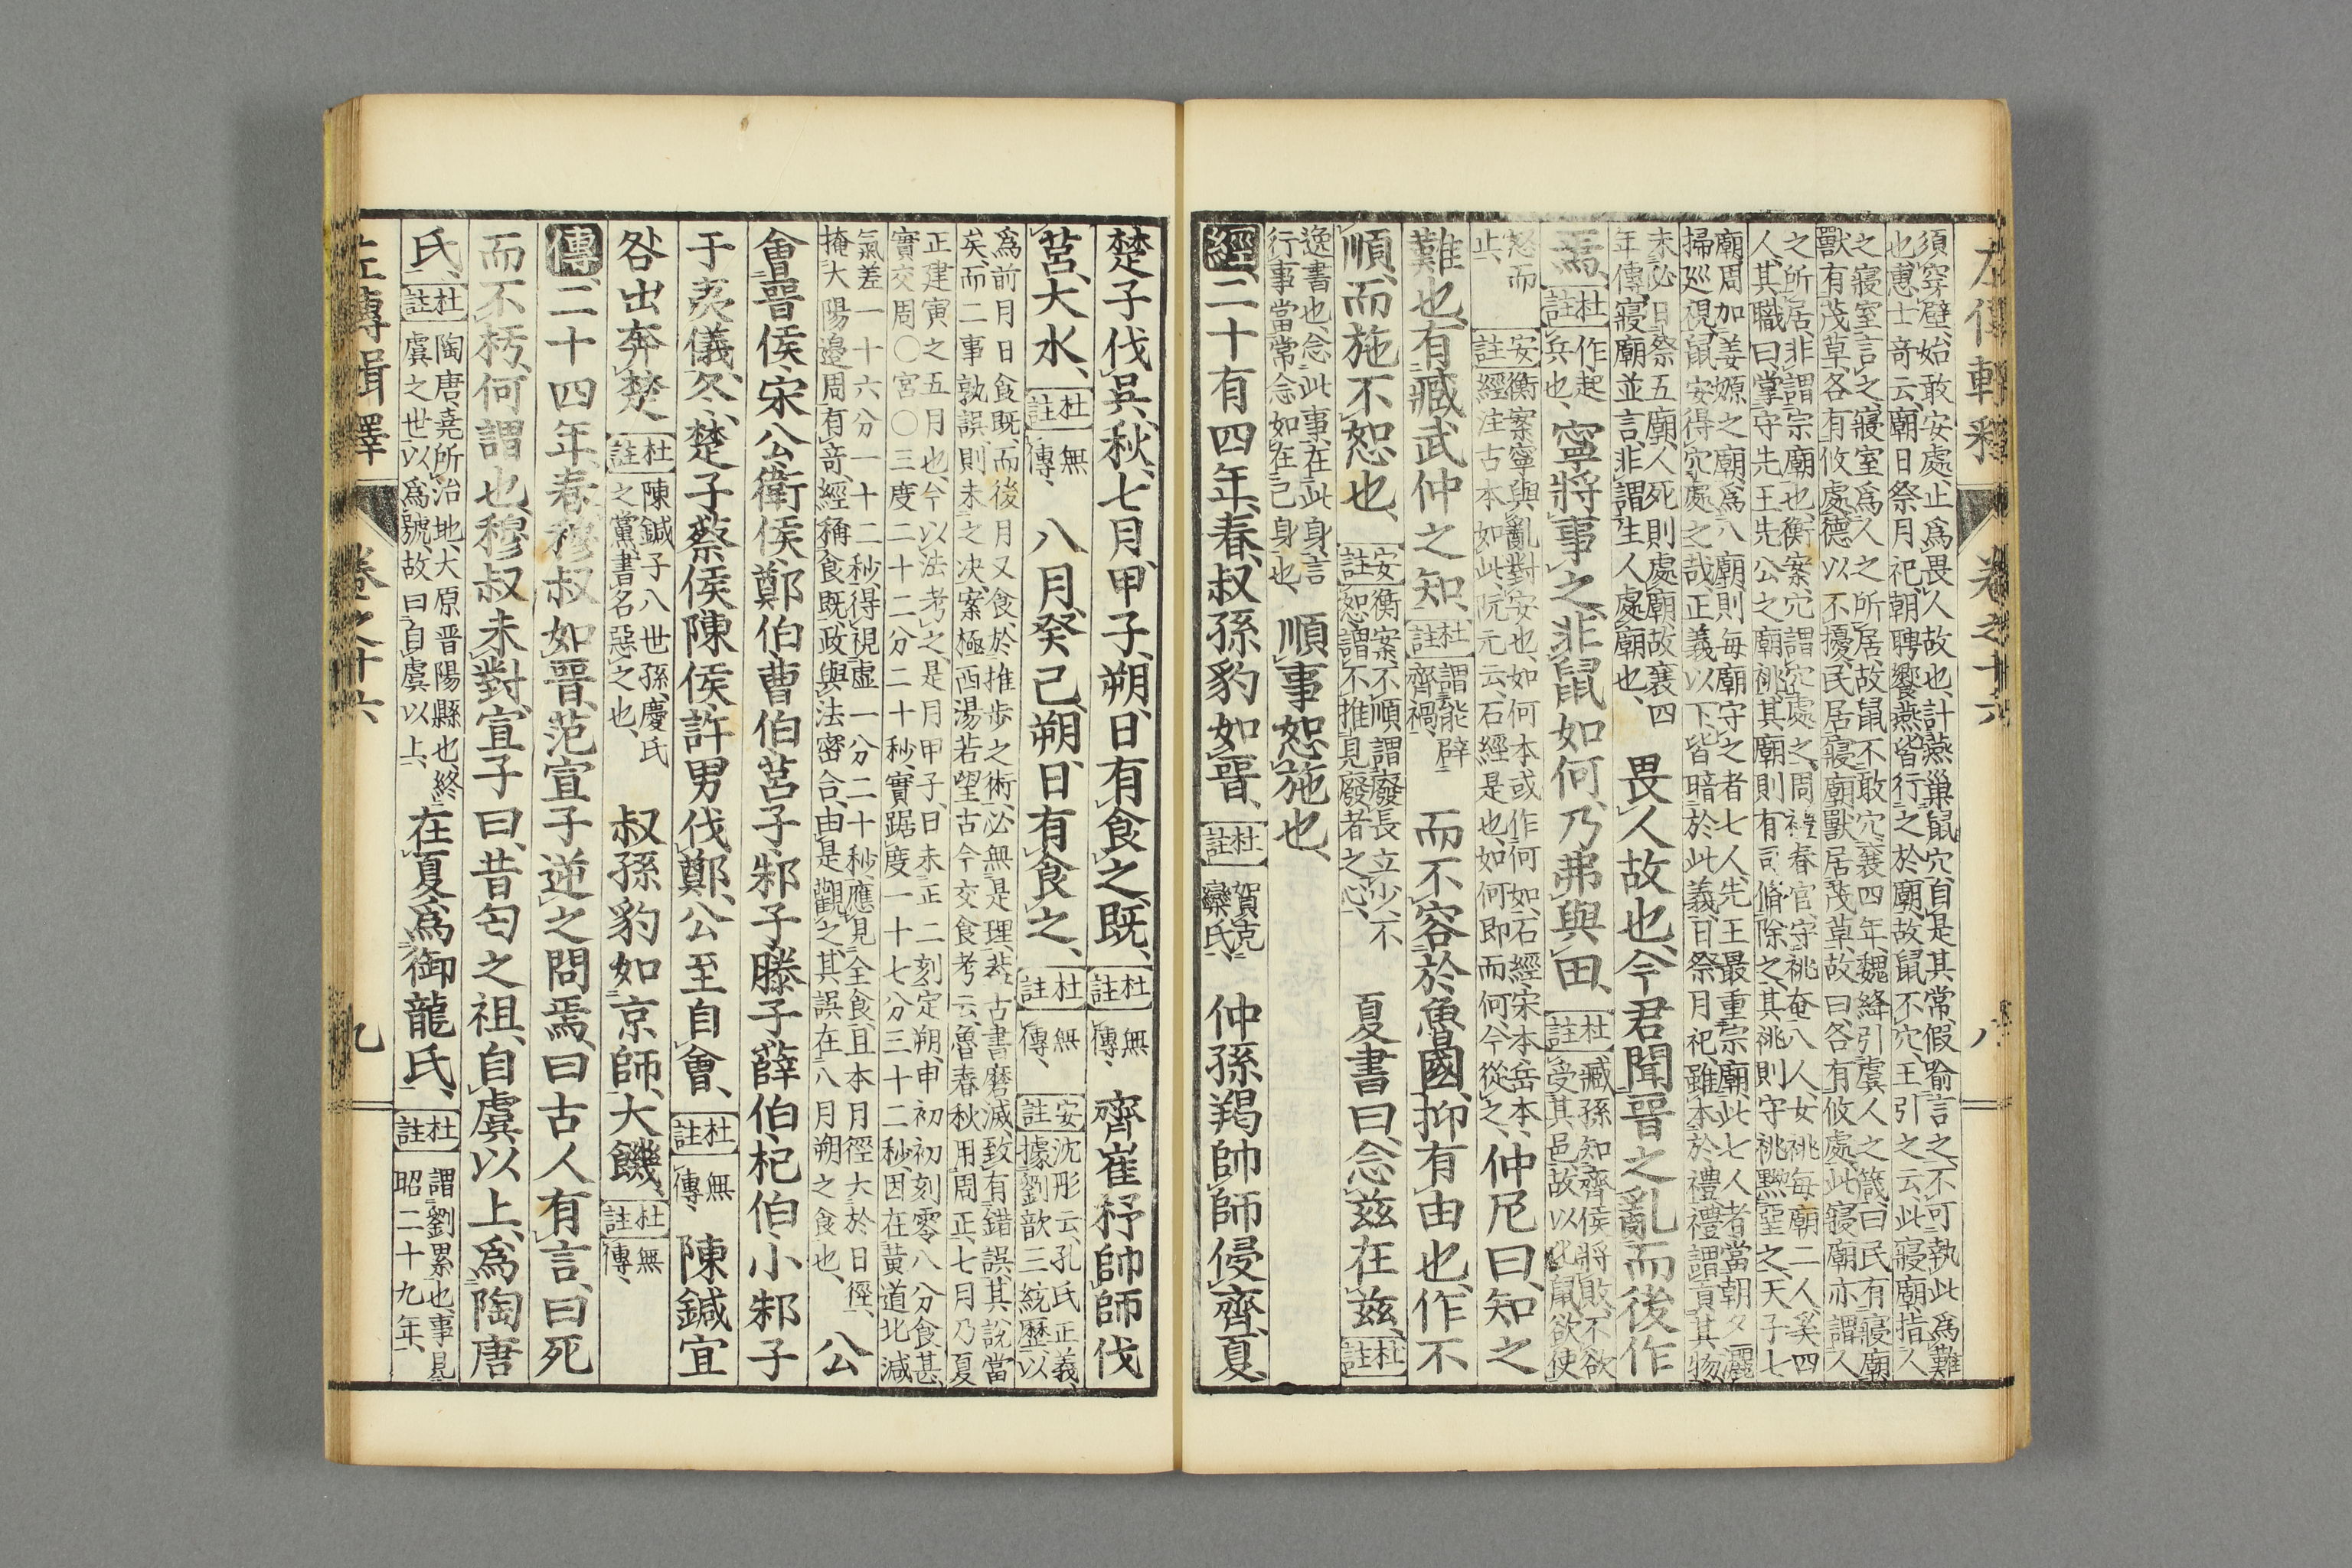 左傳輯釋 卷之十六 八
須穿壁、始敢安處、止爲畏人故也、計燕巢鼠穴、自是其常、假喻言之、不可執此爲難
也、惠士奇云、廟日祭月祀、朝聘饗燕、皆行之於廟、故鼠不穴、王引之云、此寢廟、指人
之寢室言之、寢室爲人之所居、故鼠不敢穴、襄四年、魏絳引虞人之箴曰、民有寢廟、
獸有茂草、各有攸處、德以不擾、民居寢廟、獸居茂草、故曰各有攸處、此寢廟亦謂人
之所居、非謂宗廟也、衡案、穴謂穴處之、周禮春官、守祧奄八人、女祧每廟二人、奚四
人、其職曰、掌守先王先公之廟祧、其廟則有司脩除之、其祧則守祧黝堊之、天子七
廟、周加姜嫄之廟、爲八廟、則每廟守之者七人、先王最重宗廟、此七人者、當朝夕灑
掃巡視、鼠安得穴處之哉、正義以下皆暗於此義、日祭月祀、雖本於禮、禮謂貢其物
未必日祭五廟、人死則處廟、故襄四
年傳、寢廟並言、非謂生人處廟也、
畏人故也、今君聞晉之亂、而後作
焉、杜註作起兵也、寧將事之、非鼠如何、乃弗與田、杜註臧孫知齊侯將敗、不欲受其邑、故以比鼠、欲使
怒而止、安註衡案、寧與亂對、安也、如何本或作何如、石經宋本岳本、經注古本如此、阮元云、石經是也、如何即而何、今從之、仲尼曰、知之
難也、有臧武仲之知、杜註謂能辟齊禍、而不容於魯國、抑有由也、作不
順、而施不恕也、安註衡案、不順謂廢長立少、不恕謂不推見廢者之心、夏書曰、念茲在茲、杜註
逸書也、念此事、在此身、言行事當常念如在己身也、順事恕施也、
經、二十有四年、春、叔孫豹如晉、杜註賀克欒氏、仲孫羯帥師侵齊、夏、
楚子伐吳、秋、七月、甲子、朔、日有食之、既、杜註無傳、齊崔杼帥師伐
莒、大水、杜註無傳、八月、癸巳、朔、日有食之、杜註無傳、安註沈彤云、孔氏正義、據劉歆三統歷、以
爲前月日食既、而後月又食、於推步之術、必無是理、蓋古書磨滅、致有錯誤、其說當
矣、而二事孰誤、則未之決、案極西湯若望古今交食考云、魯春秋用周正、七月乃夏
正建寅之五月也、今以法考之、是月甲子、日未正二刻定朔、申初初刻零八分食甚、
實交周〇宮〇三度二十二分二十秒、實踞度一十七分三十二秒、因在黃道北、減
氣差一十六分一十二秒、得視虛一分二十秒、應見全食、且本月徑大於日徑、
掩大陽邊周有奇、經稱食既、政與法密合、由是觀之、其誤在八月朔之食也、公
會晉侯、宋公、衛侯、鄭伯、曹伯、莒子、邾子、滕子、薛伯、杞伯、小邾子
于夷儀、冬、楚子、蔡侯、陳侯、許男、伐鄭、公至自會、杜註無傳、陳鍼宜
咎出奔楚、杜註陳鍼子八世孫、慶氏之黨、書名惡之也、叔孫豹如京師、大饑、杜註無傳、
傳、二十四年、春、穆叔如晉、范宣子逆之問焉、曰古人有言、曰死
而不朽、何謂也、穆叔未對、宣子曰、昔匄之祖、自虞以上、爲陶唐
氏、杜註陶唐堯所治地、大原晉陽縣也、終虞之世以爲號、故曰自虞以上、在夏爲御龍氏、杜註謂劉累也、事見昭二十九年、
左傳輯釋 卷之十六 九